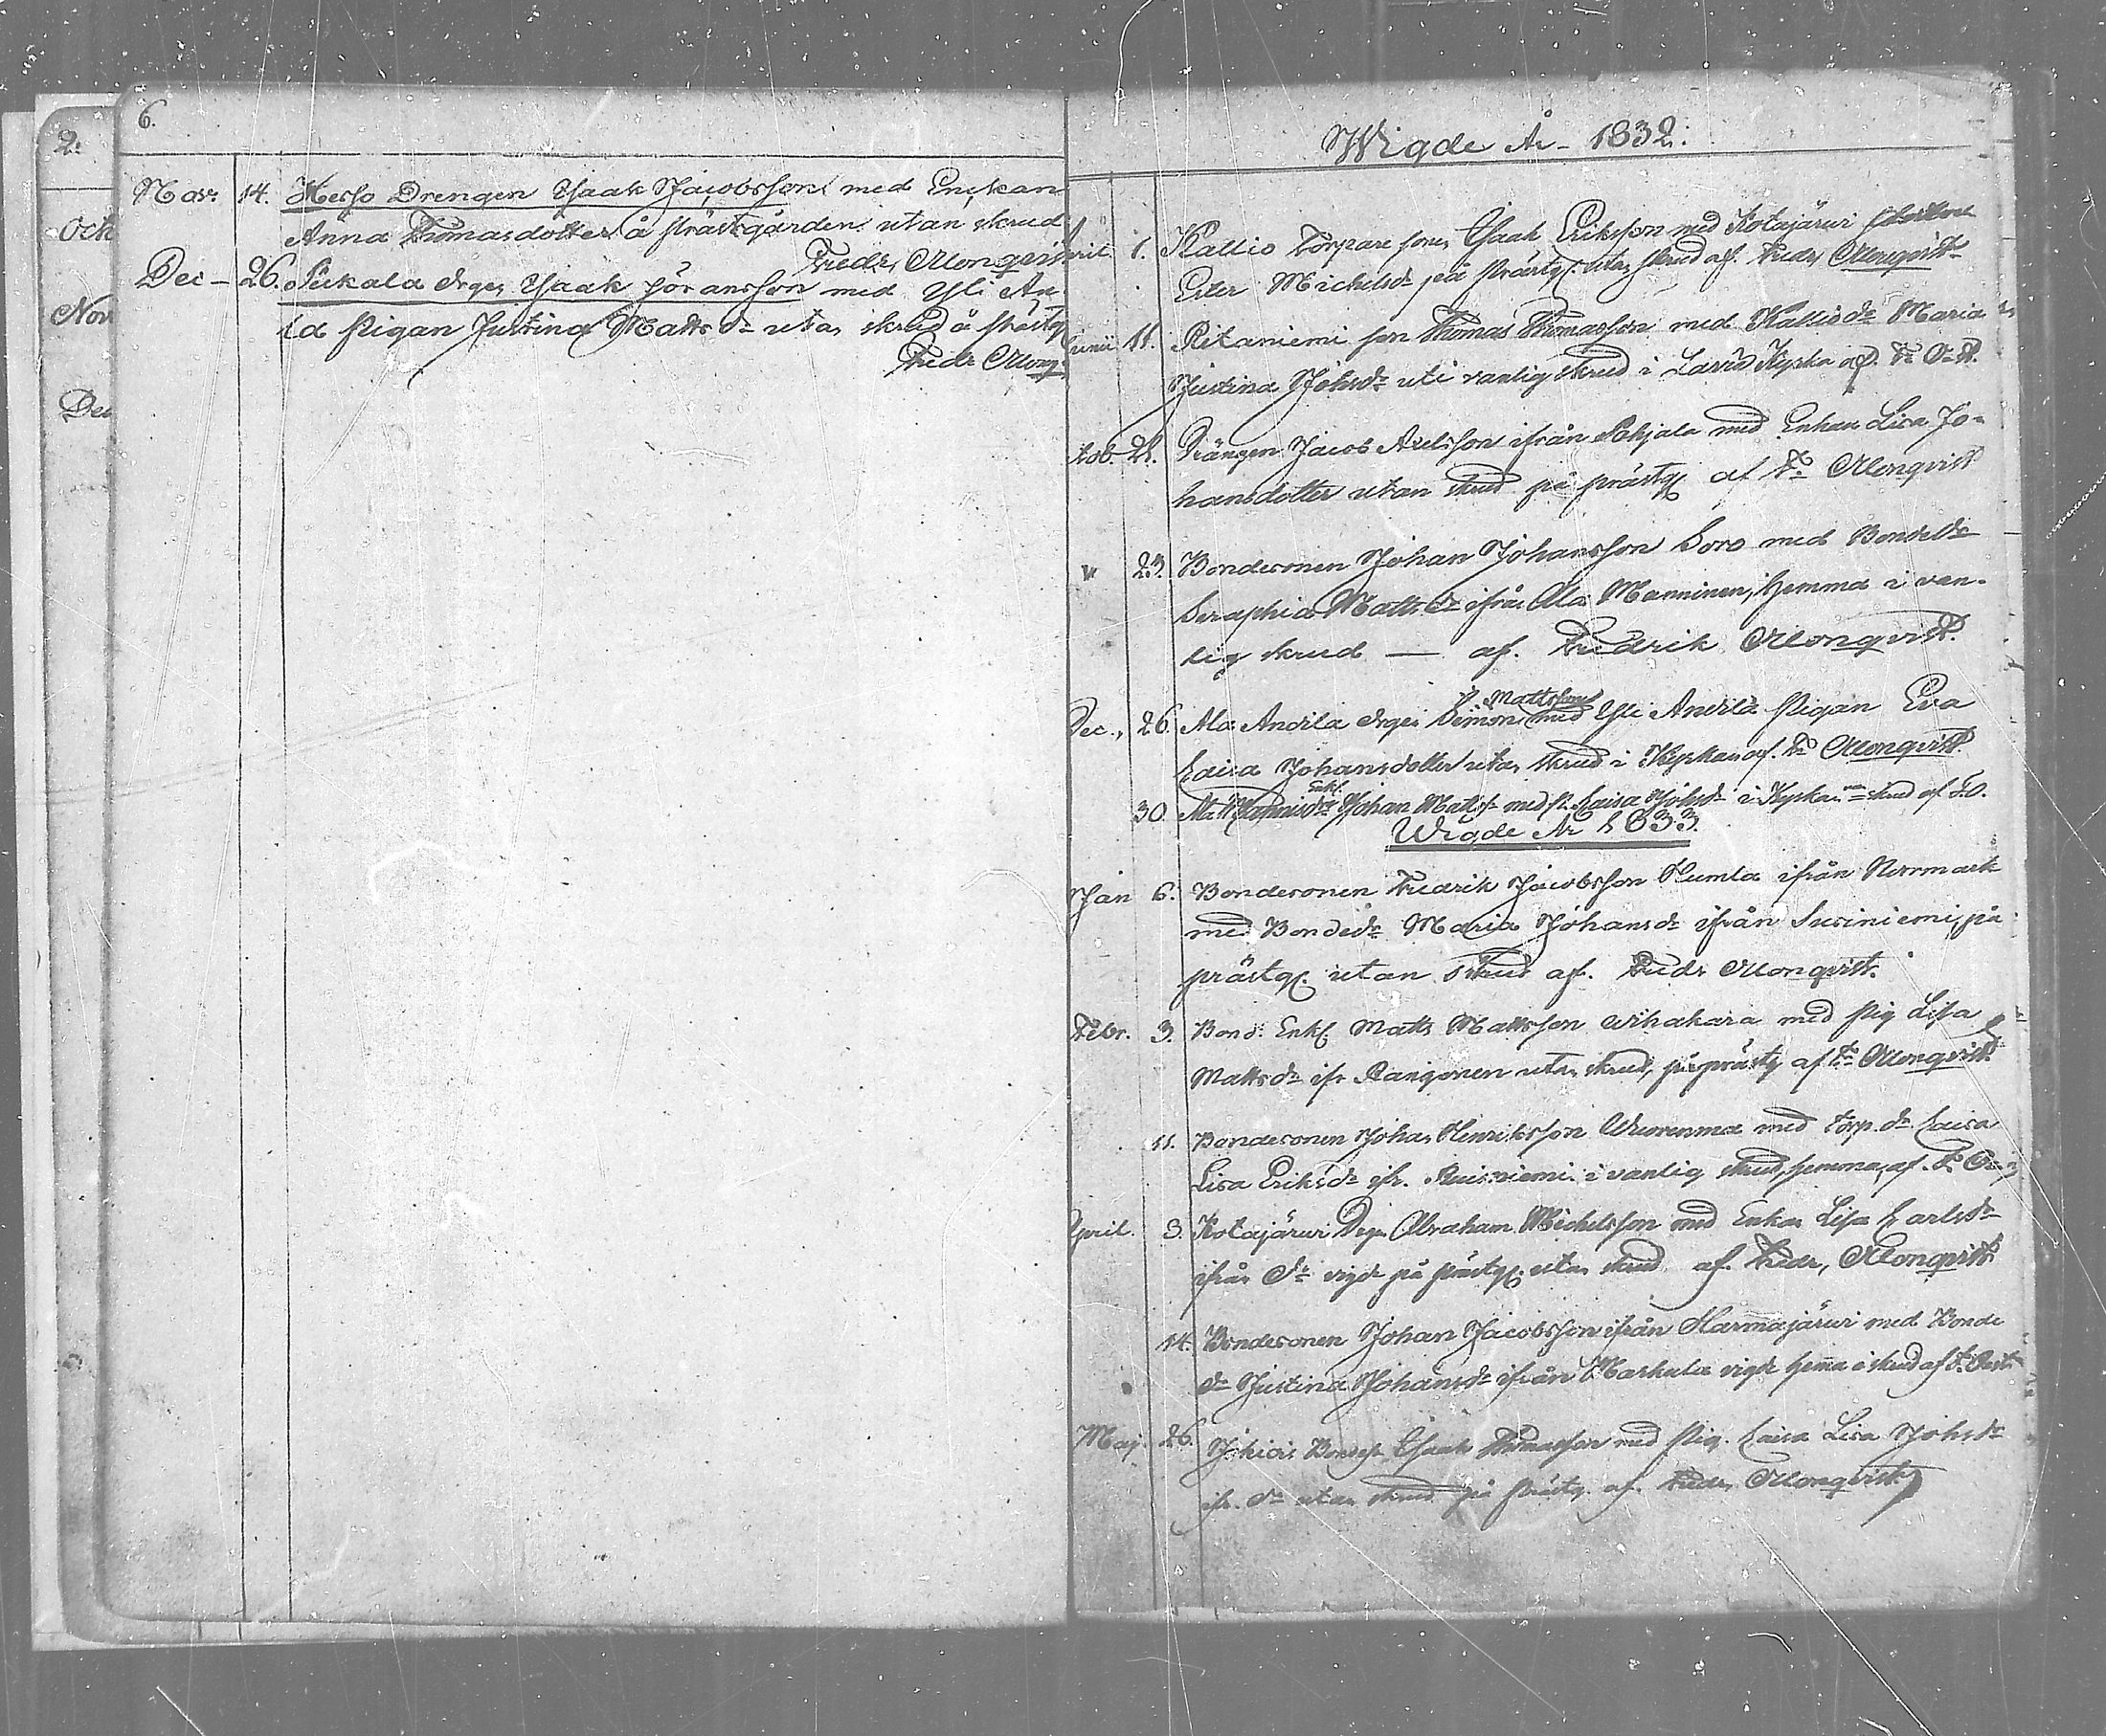 2.
Och
Nov
Dec
6.
Nov: 14. Herso Drengen Isaak Jacobsson med Enckan
Anna Thomasdotter å Prästgården utan skrud
Fredr. Mlonqvist
Dec – 26. Peckala drgen Isaak Göransson med Yli An
la Pigan Justina Matts dr utan skrud å Prästg
Fredr Mlonq
Wigde År – 1832:
April 1. Kallio Torpare sonen Isaak Eriksson med Kotajärvi
Ester Michelsdr på Prästg. utan skrud af. Fredr Mlonqvist
Junii 11. Ritaniemi son Thomas Thomasson med Kallio dr Maria
Justina Johsdr uti vanlig skrud i Lavia Kyrka af. Fr
Drängen Jacob Axelsson ifrån Pohjala med Enkan Lisa Jo-
hansdotter utan skrud på prästg. af Fr Mlonqvist
" 23. Bondesonen Johan Johansson Soro med Bondedr
Seraphia Matts dr ifrån Ala Manninen, hemma i van-
lig skrud — af. Fredrik Mlonqvist.
Mattsson
Dec., 26. Ala Anvila drgen Simon med Yli Anvila Pigan Eva
Caisa Johansdotter utan skrud i Kyrkan af. Fr Mlonqvist
Enkl.
30. Ala Johan Matts med P. Caisa Johsdr i Kyrkan skrud af F.O.
Wigde År 1833.
Jan 6. Bondesonen Fredrik Jacobsson Humla ifrån Norrmark
med Bondedr Maria Johansdr ifrån Susiniemi, på
prästg. utan skrud af. Fredr Mlonqvist.
Febr. 3. Bond: Enkl. Matts Mattsson Wihakara med Pig Lisa
Mattsdr ifr Pangonen utan skrud, på prästg af Fr Mlonqvist
11. Bondesonen Johan Henriksson Wuorenma med Torp. dr Caisa
Lisa Eriksdr ifr. Ruisniemi i vanlig skrud, hemma, af. Fr
April. 8. Kotajärvi Drgn Abraham Michelsson med Enkan Lisa Carlsdr
ifrån dr vigde på prästg. utan skrud af. Fredr, Mlonqvist
14. Bondesonen Johan Jacobsson ifrån Harmajärvi med Bonde
dr Justina Johansdr ifrån Markula vigde hemma i skrud af Fr.
Maj. 26. Bondes Isaak Thomasson med Pig. Caisa Lisa Johsdr
ifr. dr utan skrud på Prästg. af. Fredr, Mlonqvist